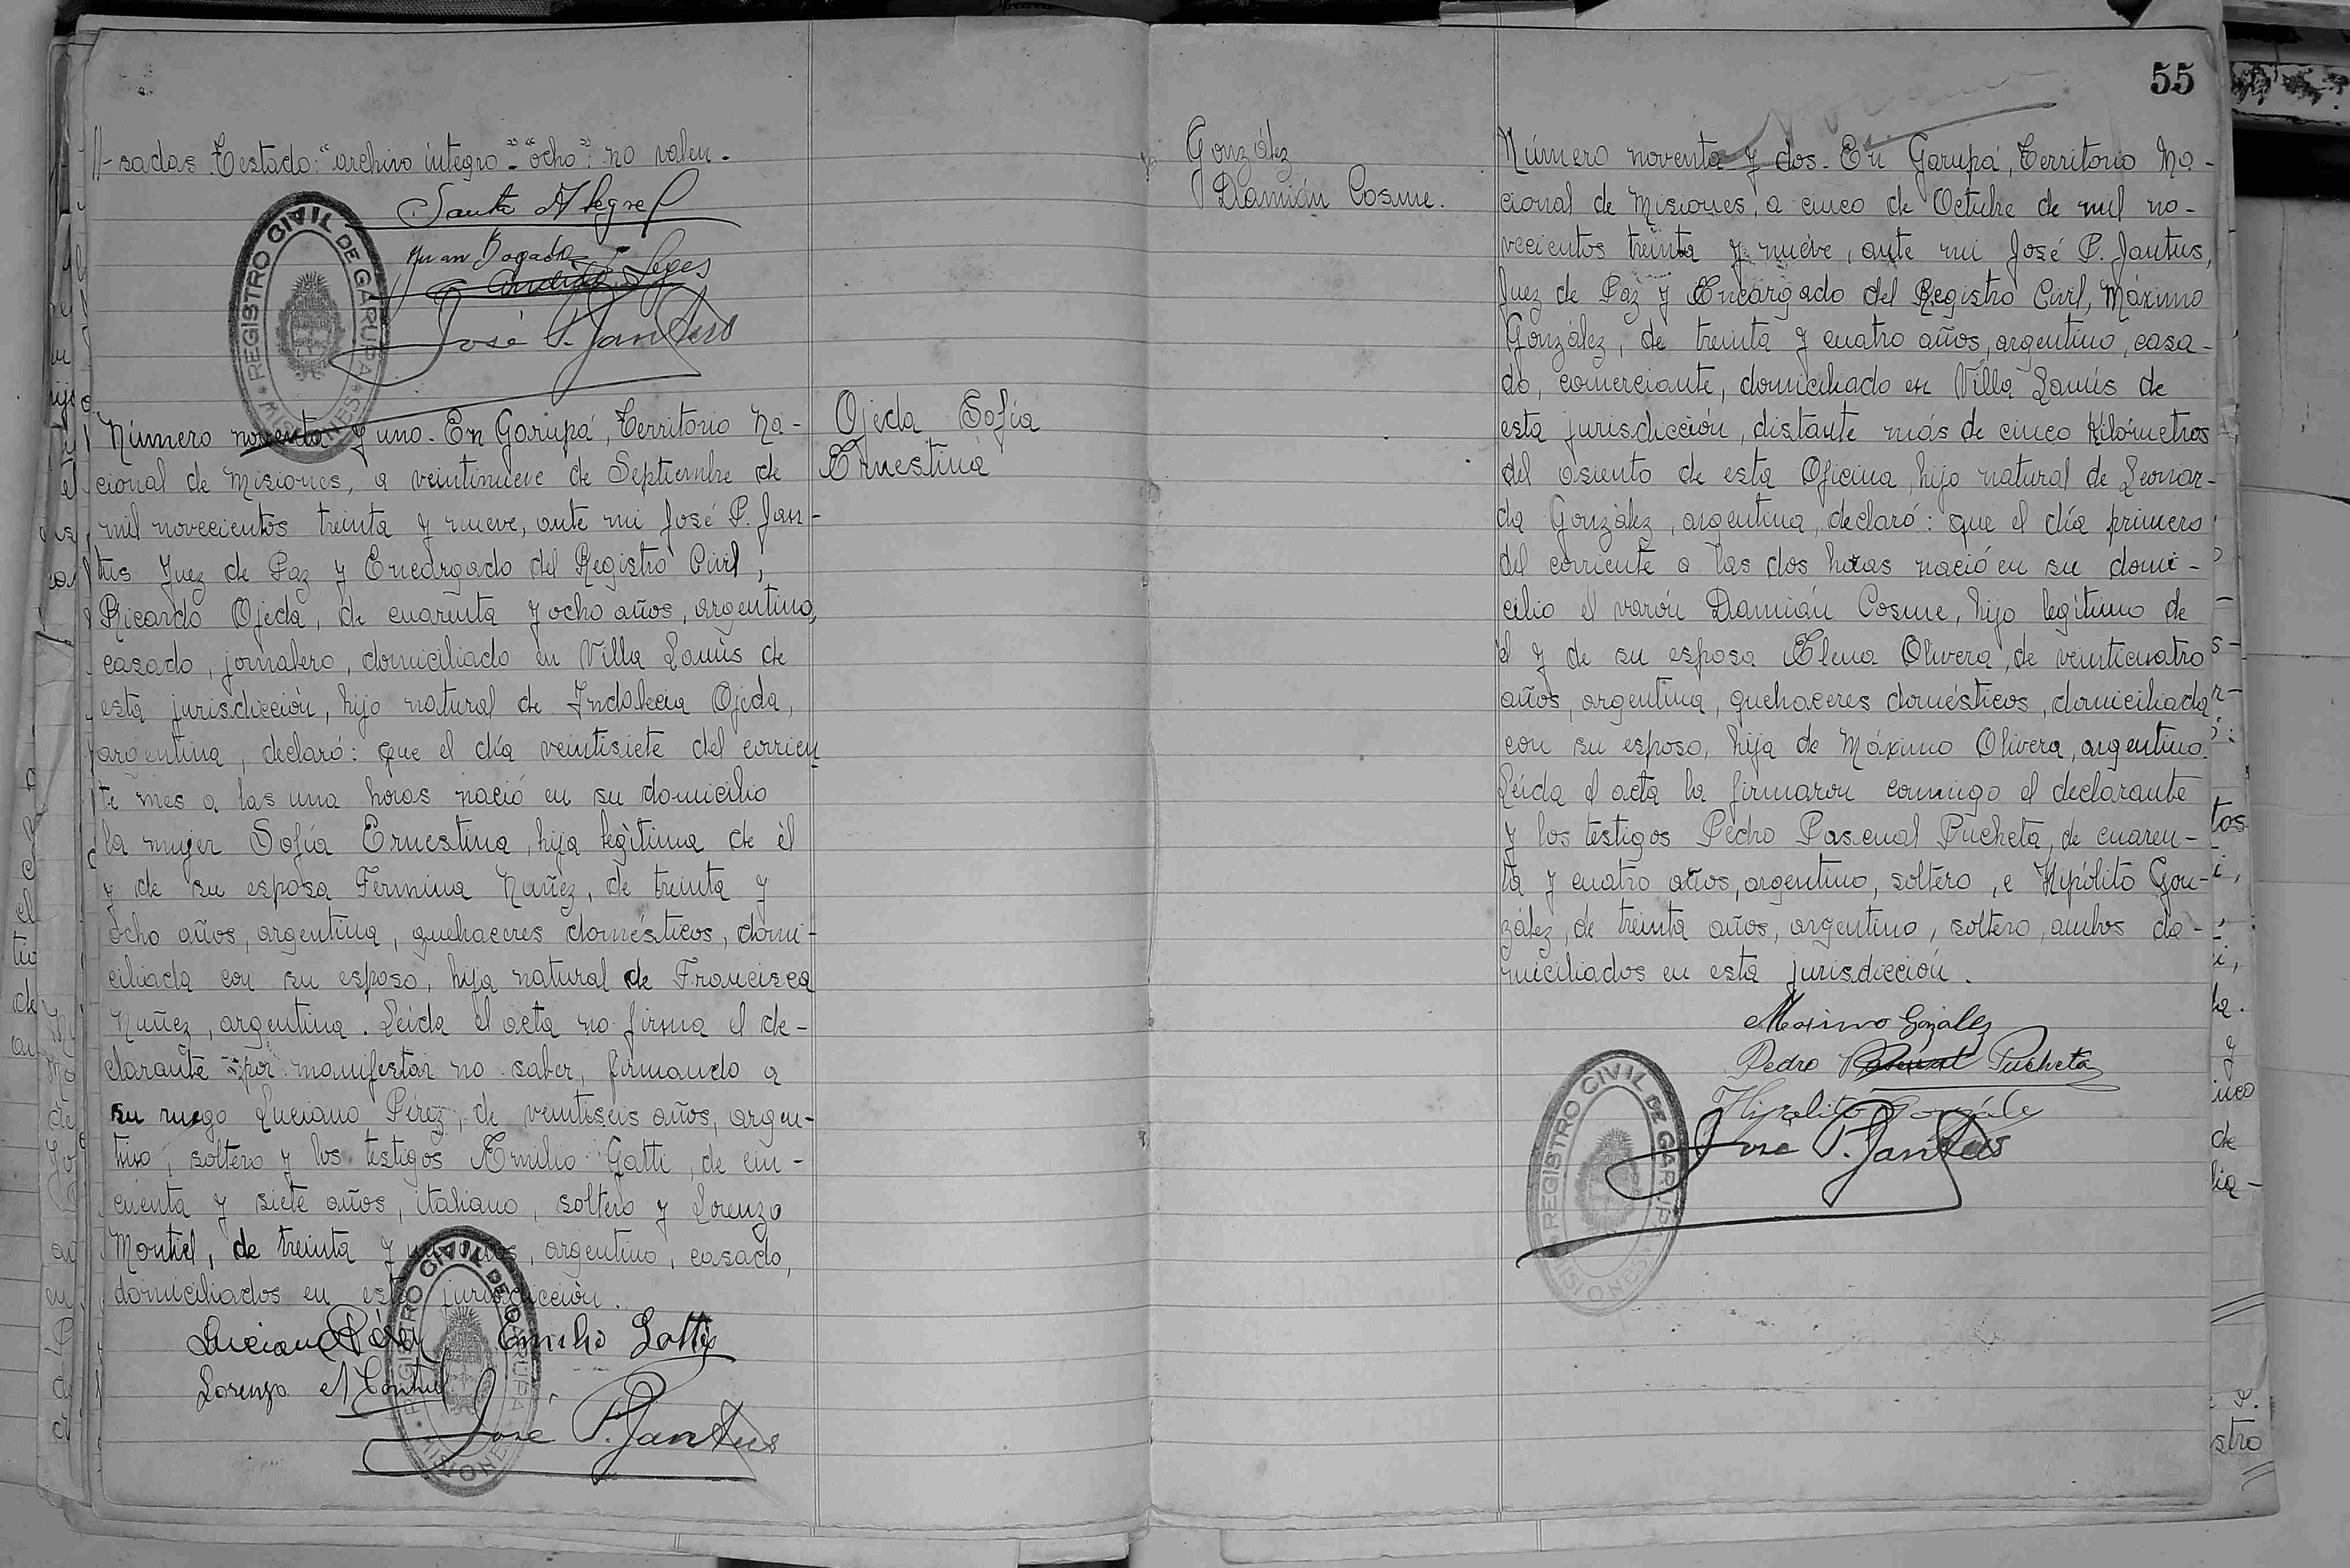 //-sadas. Testado: "archivo íntegro" - "ocho": no valen.
Santo Alegre
Juan Bogado
Leges
José P. Jantus
REGISTRO CIVIL DE GARUPA
MISIONES
Número noventa y uno. En Garupá, Territorio Na-
cional de Misiones, a veintinueve de Septiembre de
mil novecientos treinta y nueve, ante mi José P. Jan-
tus Juez de Paz y Encargado del Registro Civil,
Ricardo Ojeda, de cuarenta y ocho años, argentino,
casado, jornalero, domiciliado en Villa Lanús de
esta jurisdicción, hijo natural de Indalecia Ojeda,
argentina, declaró: que el día veintisiete del corrien
te mes a las una horas nació en su domicilio
la mujer Sofía Ernestina, hija legítima de él
y de su esposa Fermina Nuñez, de treinta y
ocho años, argentina, quehaceres domésticos, domi-
ciliada con su esposo, hija natural de Francisca
Nuñez, argentina. Leída el acta no firma el de-
clarante por manifestar no saber, firmando a
su ruego Luciano Pérez, de veintiseis años, argen-
tino, soltero y los testigos Emilio Gatti, de cin-
cuenta y siete años, italiano, soltero y Lorenzo
Montiel, de treinta y años, argentino, casado,
domiciliados en esta jurisdicción.
Luciano Pérez Emilio Gatti
Lorenzo Montiel
José P. Jantus
REGISTRO CIVIL DE GARUPA
MISIONES
Ojeda Sofía
Ernestina
55
González
Damián Cosme.
Número noventa y dos. En Garupá, Territorio Na-
cional de Misiones, a cinco de Octubre de mil no-
vecientos treinta y nueve, ante mi José P. Jantus,
Juez de Paz y Encargado del Registro Civil, Máximo
González, de treinta y cuatro años, argentino, casa-
do, comerciante, domiciliado en Villa Lanús de
esta jurisdicción, distante más de cinco Kilómetros
del asiento de esta Oficina, hijo natural de Leonar-
da González, argentina, declaró: que el día primero
del corriente a las dos horas nació en su domi-
cilio el varón Damián Cosme, hijo legítimo de
él y de su esposa Elena Olivera, de veinticuatro
años, argentina, quehaceres domésticos, domiciliada
con su esposo, hija de Máximo Olivera, argentino.
Leída el acta la firmaron conmigo el declarante
y los testigos Pedro Pascual Pucheta, de cuaren-
ta y cuatro años, argentino, soltero, e Hipólito Gon-
zález, de treinta años, argentino, soltero, ambos do-
miciliados en esta jurisdicción.
Maximo Gozalez
Pedro Pascual Pucheta
Hipolito Gonzále
José P. Jantus
REGISTRO CIVIL DE GARUPA
MISIONES